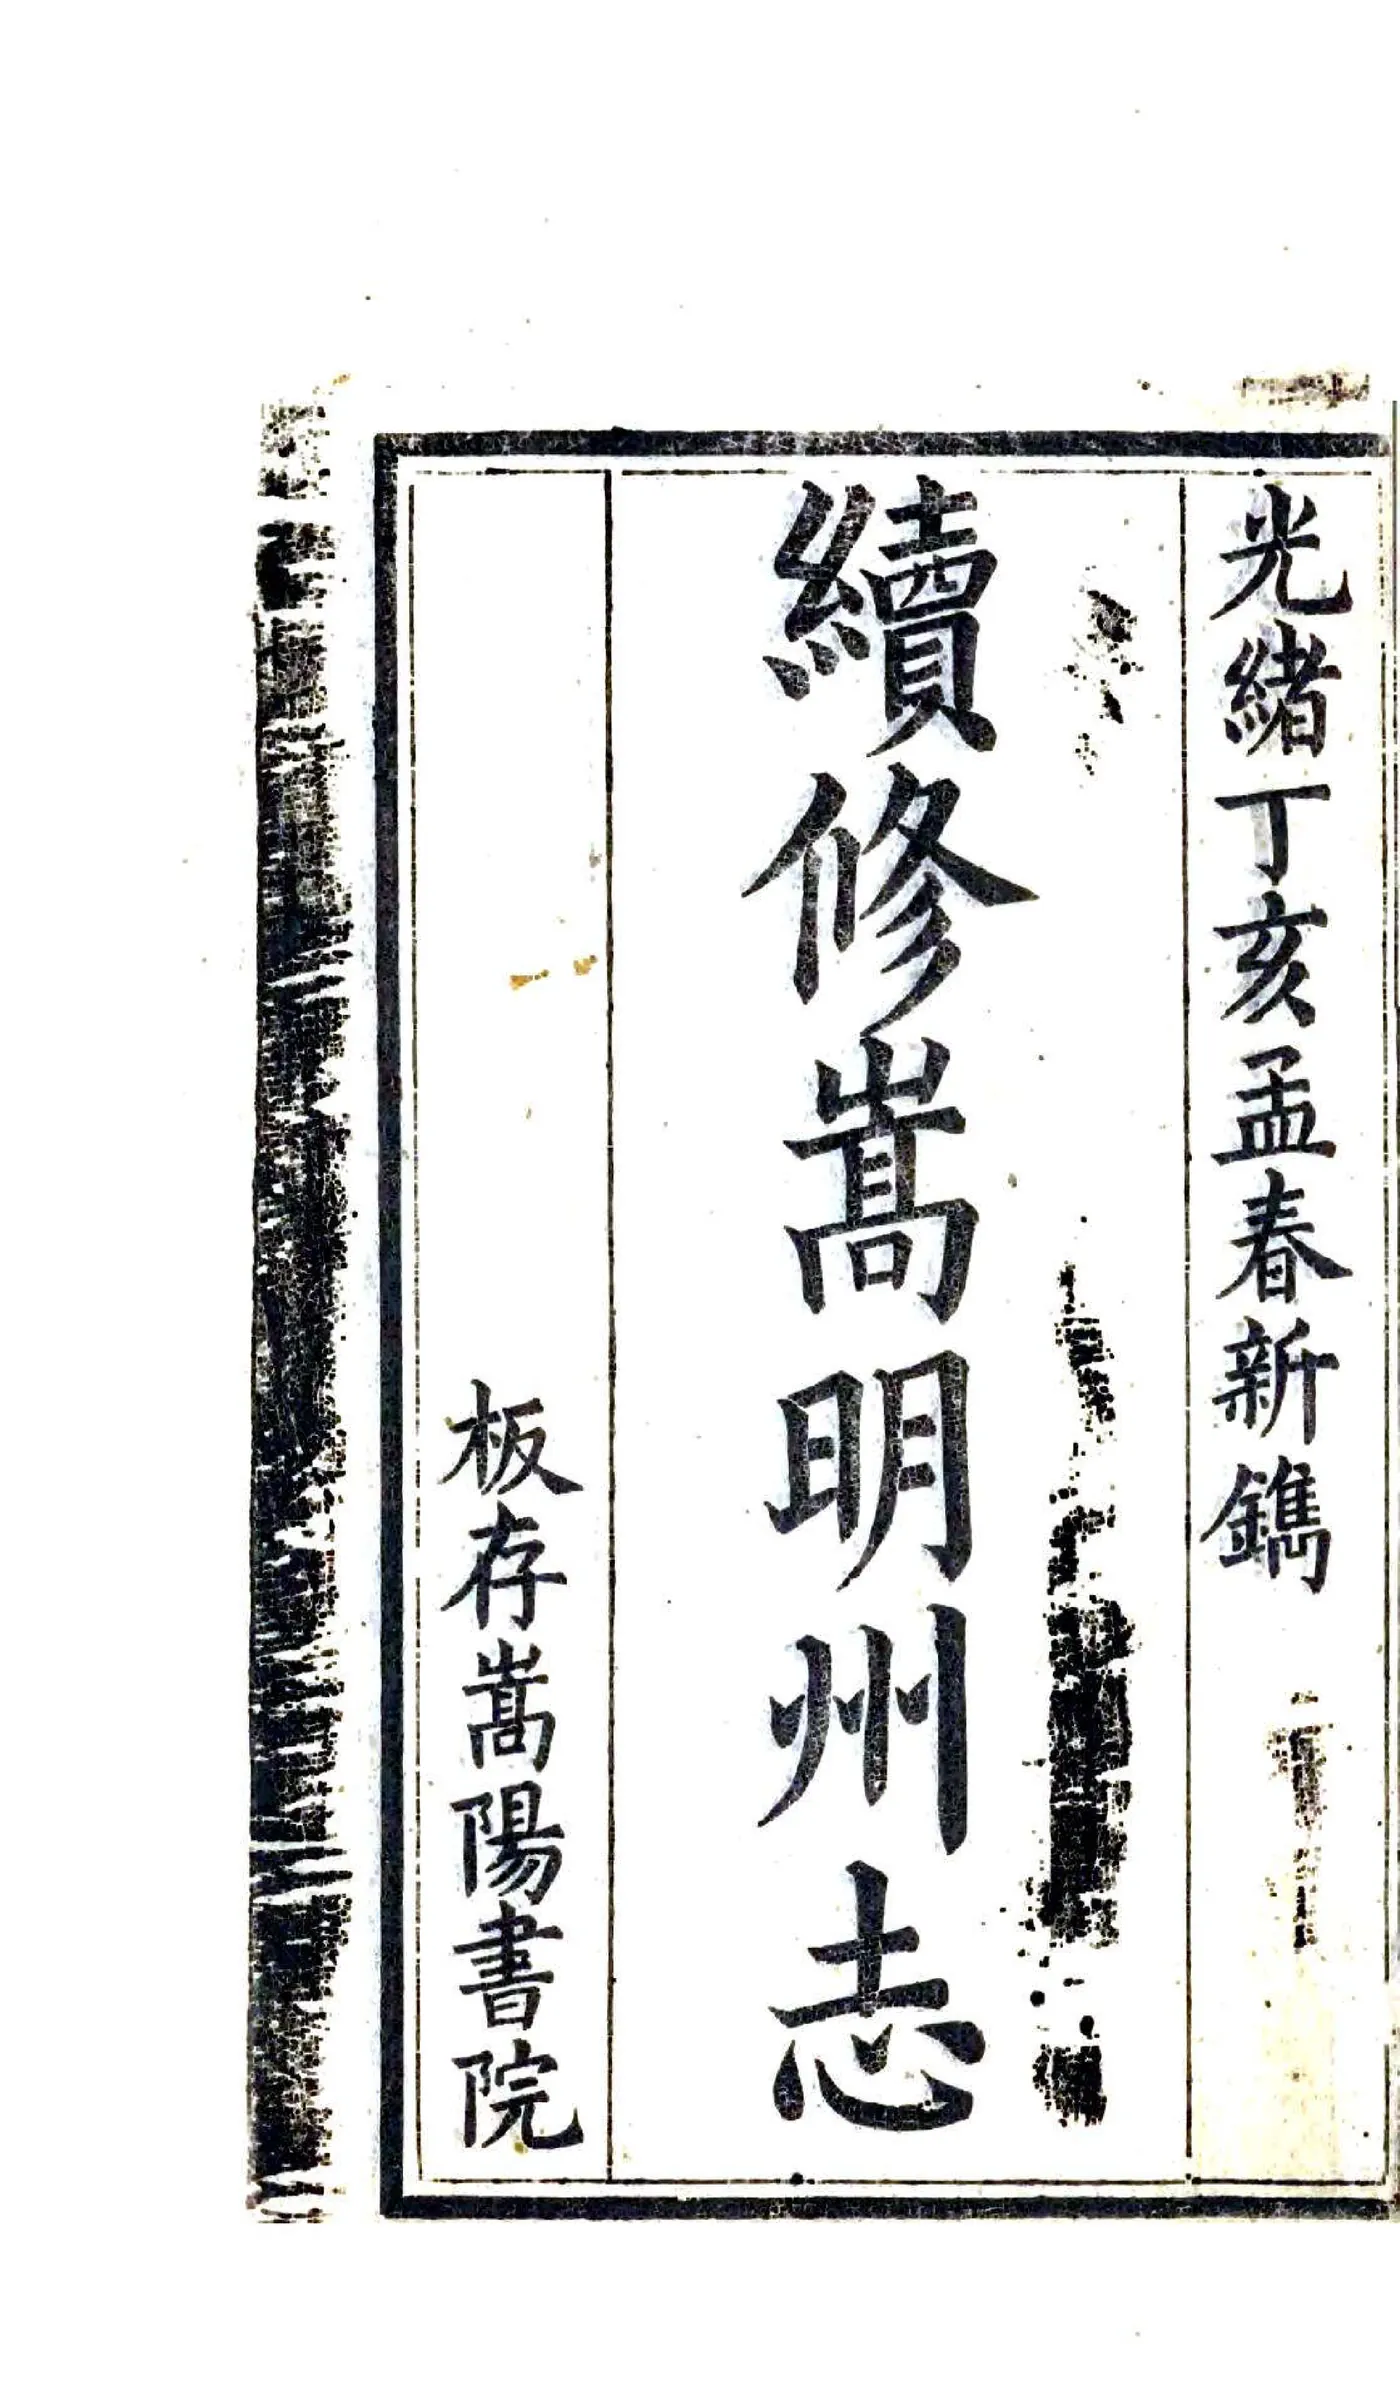 光緒丁亥孟春新鐫
續修嵩明州志
板存嵩陽書院